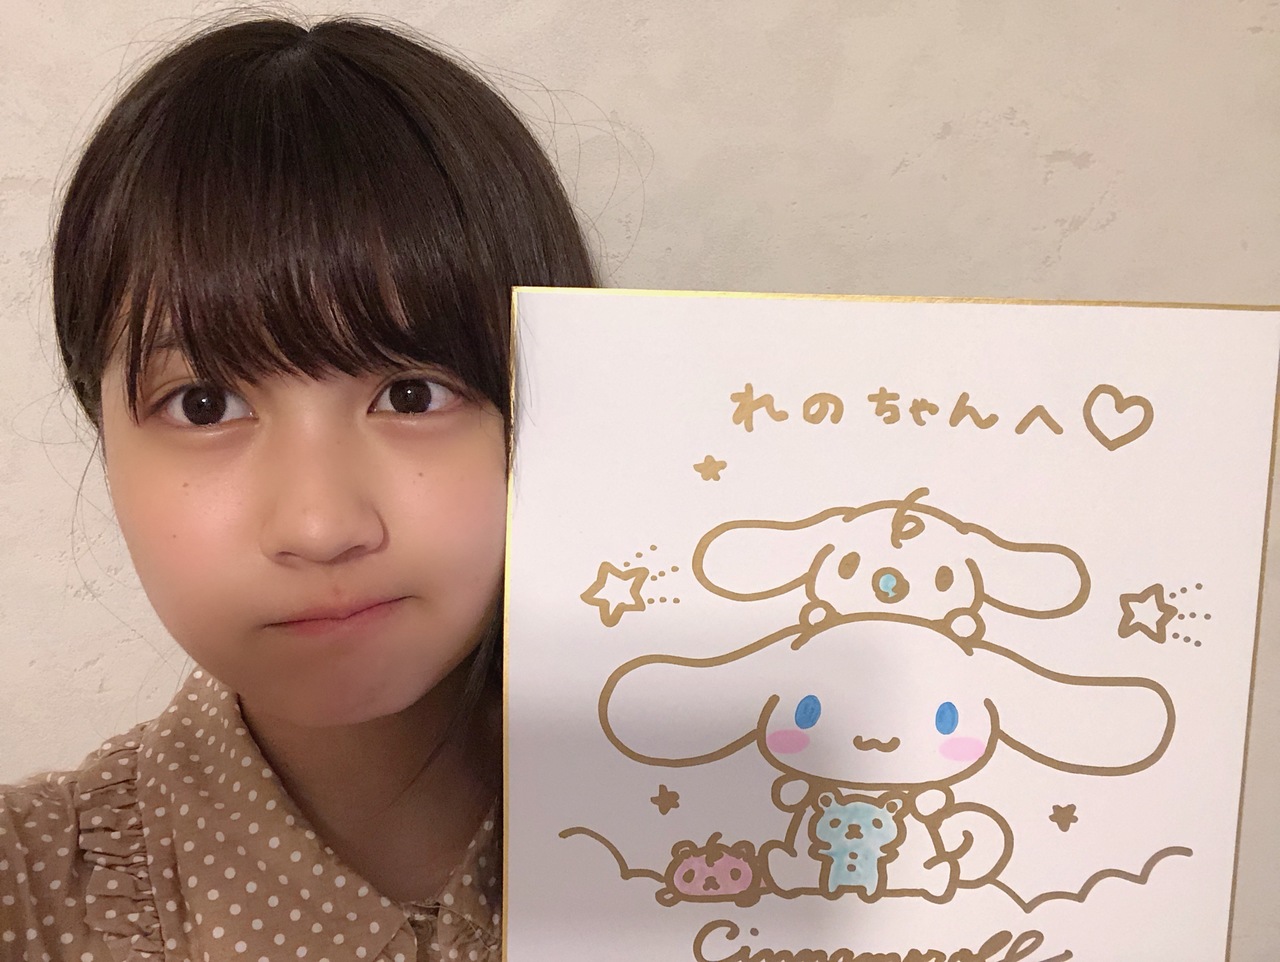 れのちゃんへ♡
Cinnamoroll